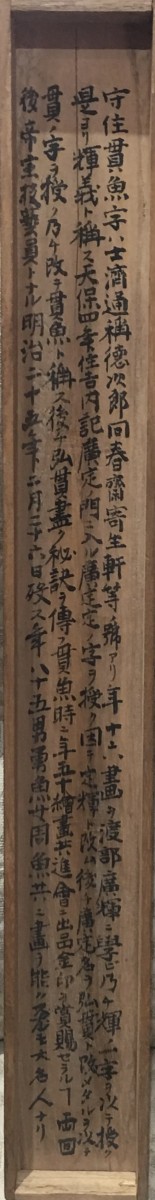 守住貫魚字ハ士済通稱徳次郎回春齋寄生軒等ノ號アリ年十六畫ヲ渡部廣輝ニ學ヒ乃チ輝ノ一字ヲ以テ授ク
是ヨリ輝義ト稱ス天保四年住吉内記廣定ノ門ニ入ル廣定定ノ字ヲ授ク因テ定輝ト改ム後チ廣定名ヲ弘貫ト改メタルヲ以テ
貫ノ字ヲ授ク乃チ改テ貫魚ト稱ス後チ弘貫畫ノ秘訣ヲ傳フ貫魚時ニ年五十繪畫共進會ニ出品金印ヲ賞賜セラルヽ丁両回
後帝室技藝員トナル明治二十五年二月二十六日歿ス年八十五男勇魚女周魚共ニ畫ヲ能ク大名人ナリ